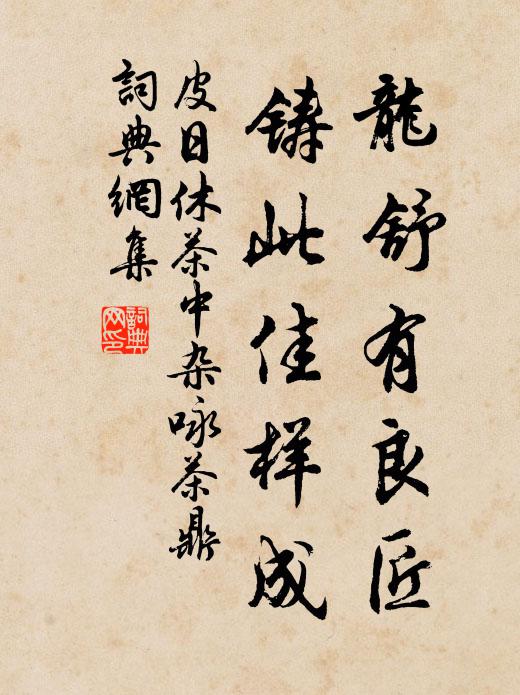 龍舒有良匠
鑄此佳样成
皮日休茶中杂咏茶鼎
詞典網集
詞典
网印